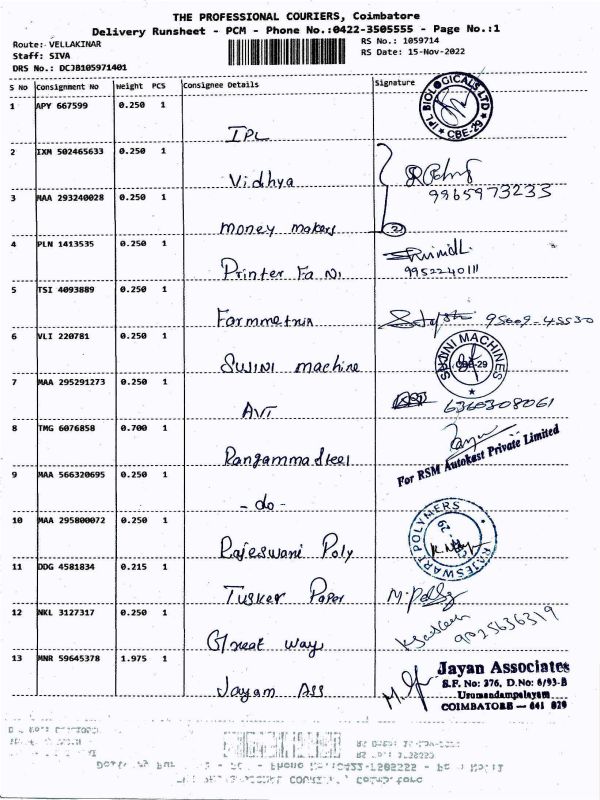 THE PROFESSIONAL COURIERS, Coimbatore
Delivery Runsheet - PCM - Phone No.:0422-3505555 - Page No.:1
Route: VELLAKINAR
Staff: SIVA
DRS No.: DCJB105971401
RS No.: 1059714
RS Date: 15-Nov-2022
S No Consignment No Weight PCS Consignee Details Signature
1 APY 667599 0.250 1
IPL
IPL BIOLOGICALS LTD * CBE-29 *
2 IXM 502465633 0.250 1
Vidhya
9965973233
3 MAA 293240028 0.250 1
money makers
2
4 PLN 1413535 0.250 1
Printer Fa Ni
9952240111
5 TSI 4093889 0.250 1
Farmmetrix
95009-45530
6 VLI 220781 0.250 1
SWINI machine
SWINI MACHINES CBE-29 *
7 MAA 295291273 0.250 1
AVT
6360308061
8 TMG 6076858 0.700 1
Rangamma Steel
For RSM Autokast Private Limited
9 MAA 566320695 0.250 1
- do -
10 MAA 295800072 0.250 1
Rajeswani Poly
RAJESWARI POLYMERS 29
11 DDG 4581834 0.215 1
Tusker Paper
12 NKL 3127317 0.250 1
Great way
9025636319
13 MNR 59645378 1.975 1
Jayam Ass
Jayan Associates
S.F. No: 376, D.No: 6/93-B
Urumandampalayam
COIMBATORE - 641 029